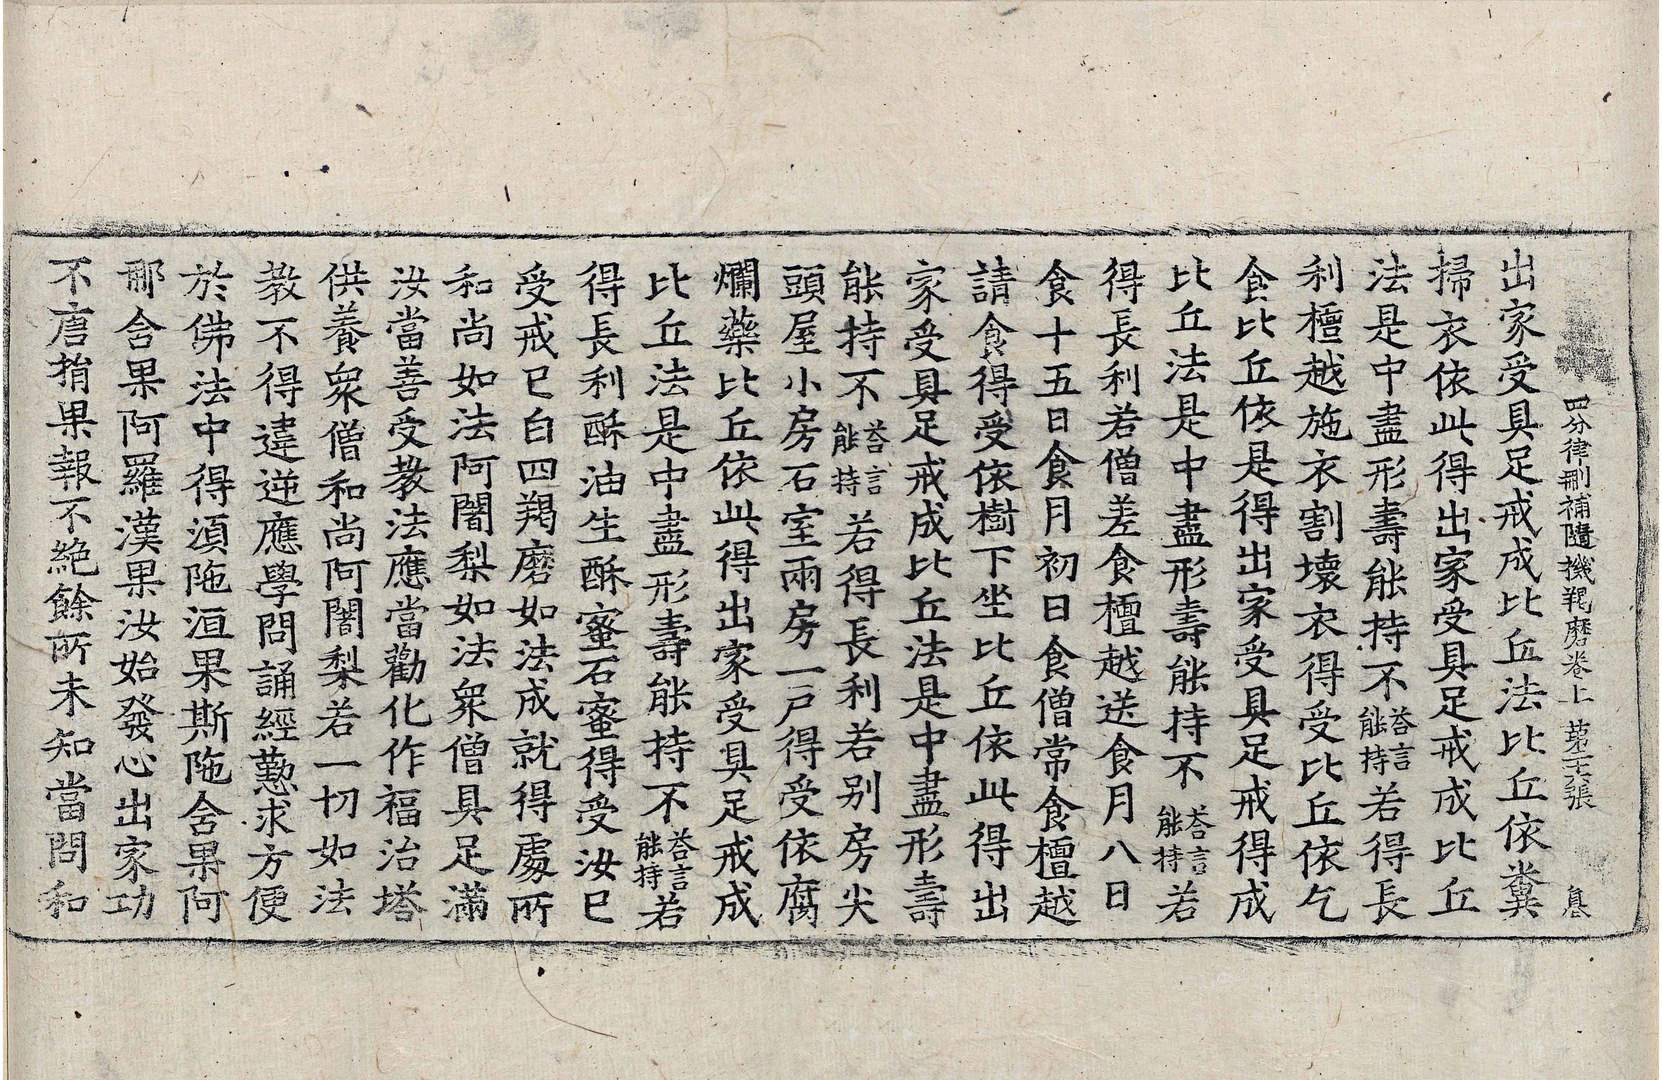 四分律刪補隨機羯磨卷上 第 張
出家受具足戒成比丘法比丘依糞
掃衣依此得出家受具足戒成比丘
法是中盡形壽能持不答言能持若得長
利檀越施衣割壞衣得受比丘依乞
食比丘依是得出家受具足戒得成
比丘法是中盡形壽能持不答言能持若
得長利若僧差食檀越送食月八日
食十五日食月初日食僧常食檀越
請食得受依樹下坐比丘依此得出
家受具足戒成比丘法是中盡形壽
能持不答言能持若得長利若別房尖
頭屋小房石室兩房一戶得受依腐
爛藥比丘依此得出家受具足戒成
比丘法是中盡形壽能持不答言能持若
得長利酥油生酥蜜石蜜得受汝已
受戒已白四羯磨如法成就得處所
和尚如法阿闍梨如法眾僧具足滿
汝當善受教法應當勸化作福治塔
供養眾僧和尚阿闍梨若一切如法
教不得違逆應學問誦經懃求方便
於佛法中得須陁洹果斯陁含果阿
那含果阿羅漢果汝始發心出家功
不唐捐果報不絕餘所未知當問和